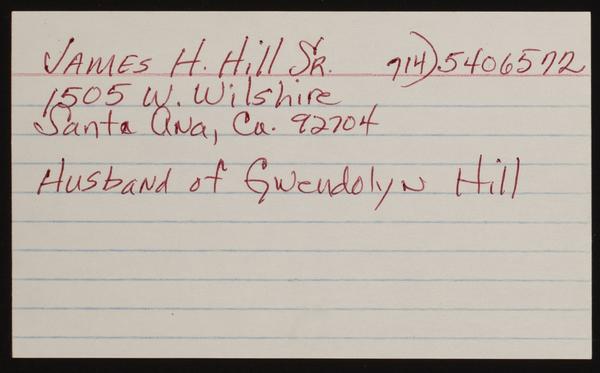 JAMES H. Hill SR. 714) 5406572
1505 W. Wilshire
Santa Ana, Ca. 92704
Husband of Gwendolyn Hill